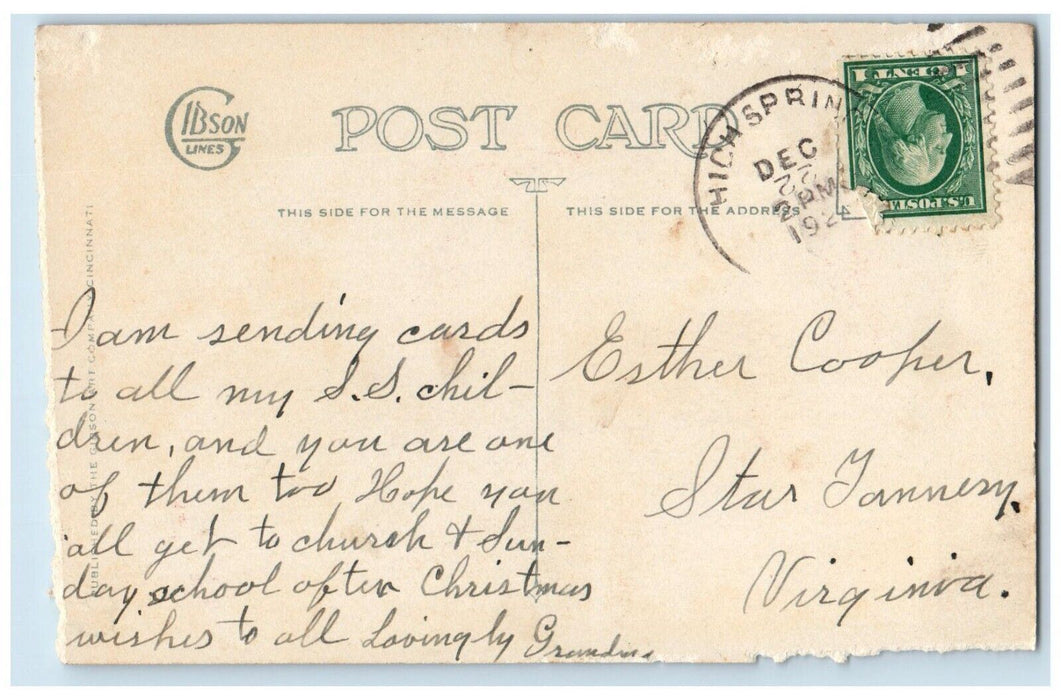 GIBSON
LINES
POST CARD
THIS SIDE FOR THE MESSAGE
THIS SIDE FOR THE ADDRESS
HIGH SPRIN
DEC
22
PM
192
1 CENT 1
U.S. POSTA
PUBLISHED BY THE GIBSON ART COMPANY, CINCINNATI
I am sending cards
to all my S.S. chil-
dren, and you are one
of them too Hope you
all get to church & Sun-
day school often Christmas
wishes to all Lovingly Grandma
Esther Cooper,
Star Tannery,
Virginia.